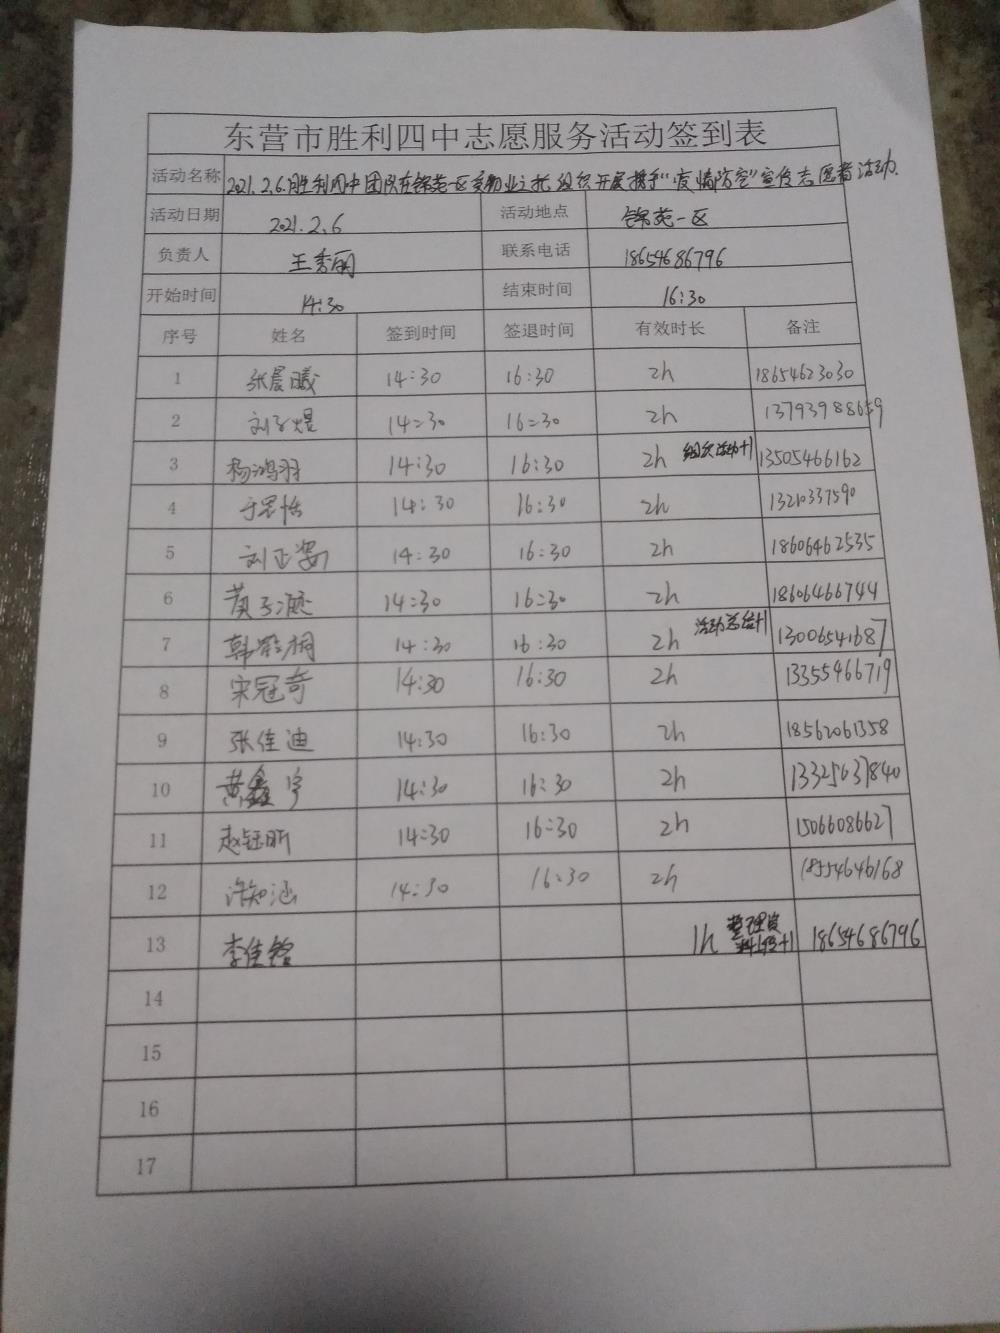 东营市胜利四中志愿服务活动签到表
活动名称 2021.2.6.胜利四中团队在锦苑一区受物业之托,组织开展携手“疫情防控”宣传志愿者活动.
活动日期 2021.2.6 活动地点 锦苑一区
负责人 王秀丽 联系电话 18654686796
开始时间 14:30 结束时间 16:30
序号 姓名 签到时间 签退时间 有效时长 备注
1 张晨曦 14:30 16:30 2h 18654623030
2 刘子煜 14:30 16:30 2h 13793988659
3 杨鸿羽 14:30 16:30 2h 组织活动+1 13505466162
4 于思怡 14:30 16:30 2h 13210337590
5 刘正姿 14:30 16:30 2h 18606462535
6 黄子 14:30 16:30 2h 18606466744
7 韩 桐 14:30 16:30 2h 活动总结+1 13006541687
8 宋冠奇 14:30 16:30 2h 13355466719
9 张佳迪 14:30 16:30 2h 18562061358
10 黄鑫宇 14:30 16:30 2h 13325637840
11 赵钰昕 14:30 16:30 2h 15066086627
12 许知涵 14:30 16:30 2h 18554646168
13 李佳铭 1h 整理资料+1 18654686796
14
15
16
17